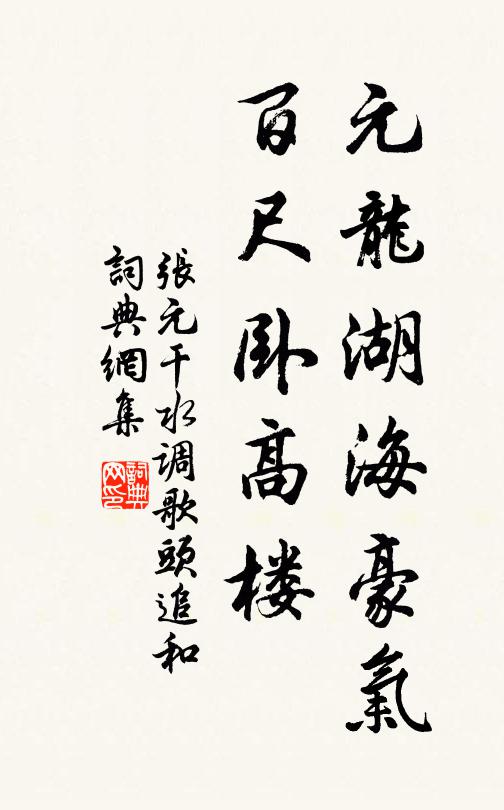 元龍湖海豪氣
百尺卧高楼
張元干水调歌頭追和
詞典網集
詞典網印